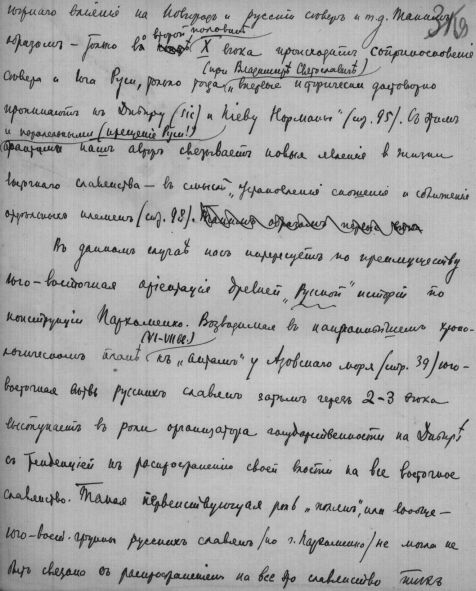 вліянія на Новгородъ и русскій сѣверъ и т.д. Такимъ
3
образомъ – только во второй половинѣ X вѣка происходитъ соприкосновеніе
(при Владимирѣ Святославичѣ)
Сѣвера и Юга Руси, только тогда „впервые исторически достовѣрно
проникаютъ къ Днѣпру (sic) и Кіеву Норманы" (стр. 95). Съ этимъ
и (крещеніе Руси!)
фактами нашъ авторъ связываетъ новыя явленія въ жизни
восточнаго славянства – въ смыслѣ „установленія сношеній и сближенія
отдѣльныхъ племенъ" (стр. 98).
Въ данномъ случаѣ насъ интересуетъ по преимуществу
юго-восточная оріентація древней „Русской" исторіи по
конструкціи Пархоменко. Возводимая въ хроно-
логическомъ планѣ (VI-VII вв.) къ „антамъ" у Азовскаго моря (стр. 39) юго-
восточная вѣтвь русскихъ славянъ затѣмъ черезъ 2-3 вѣка
выступаетъ въ роли организатора государственности на Днѣпрѣ
съ тенденціей къ распространенію своей власти на все восточное
славянство. Такая первенствующая роль „полянъ", или вообще –
юго-вост. группы русскихъ славянъ (по г. Пархоменко) не могла не
быть связана съ распространеніемъ на все это славянство